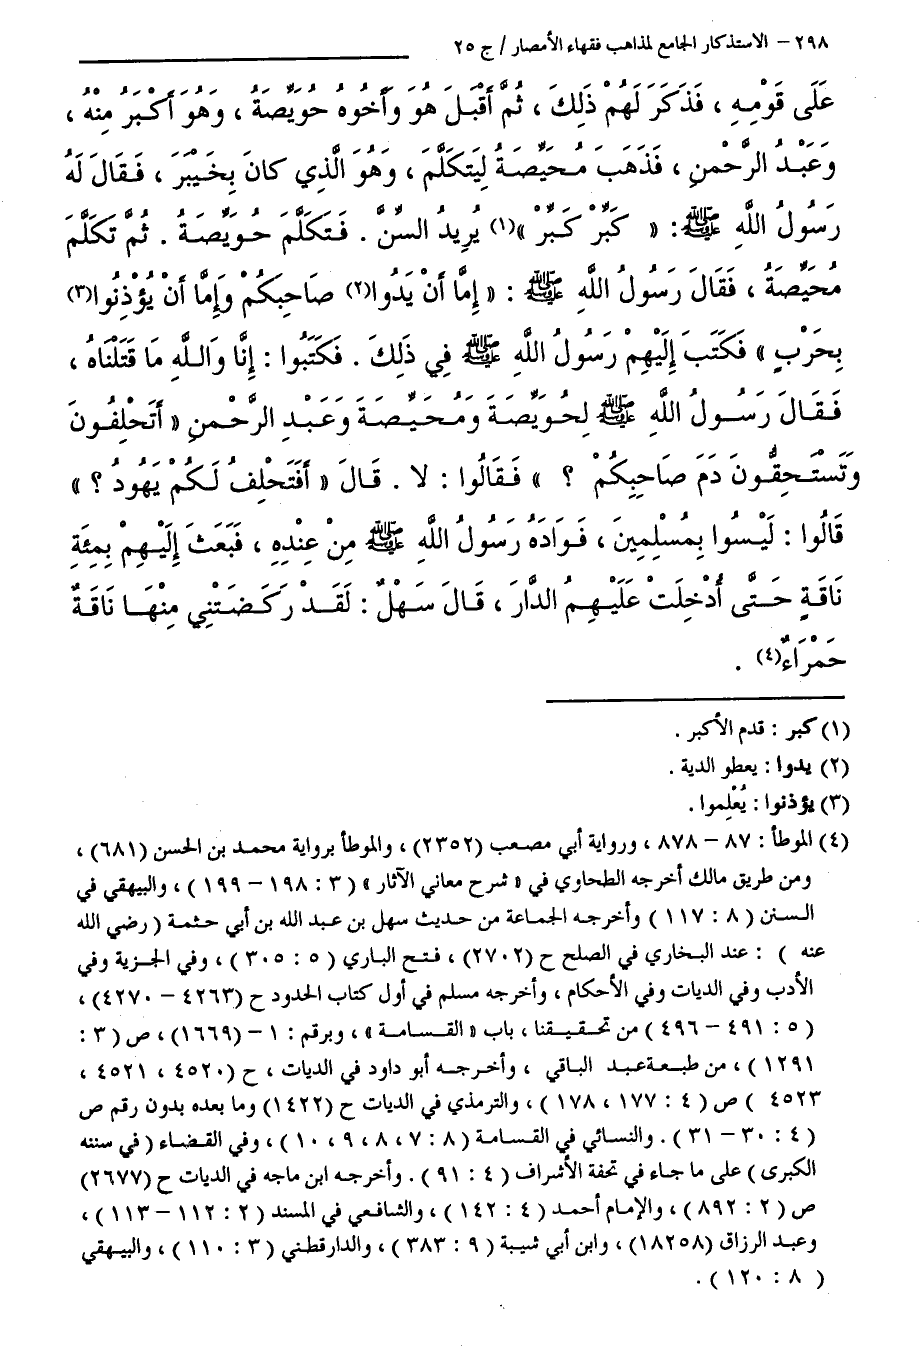 ٢٩٨ – الاستذكار الجامع لمذاهب فقهاء الأمصار / ج ٢٥
عَلَى قَوْمِهِ ، فَذَكَرَ لَهُمْ ذَلِكَ ، ثُمَّ أَقْبَلَ هُوَ وَأَخُوهُ حُوَيِّصَةُ ، وَهُوَ أَكْبَرُ مِنْهُ ،
وَعَبْدُ الرَّحْمنِ ، فَذَهَبَ مُحَيِّصَةُ لِيَتَكَلَّمَ ، وَهُوَ الَّذِي كَانَ بِخَيْبَرَ ، فَقَالَ لَهُ
رَسُولُ اللَّهِ ﷺ : « كَبِّرْ كَبِّرْ »(١) يُرِيدُ السِّنَّ . فَتَكَلَّمَ حُوَيِّصَةُ . ثُمَّ تَكَلَّمَ
مُحَيِّصَةُ ، فَقَالَ رَسُولُ اللَّهِ ﷺ : « إِمَّا أَنْ يَدُوا(٢) صَاحِبَكُمْ وَإِمَّا أَنْ يُؤْذِنُوا(٣)
بِحَرْبٍ » فَكَتَبَ إِلَيْهِمْ رَسُولُ اللَّهِ ﷺ فِي ذَلِكَ . فَكَتَبُوا : إِنَّا وَاللَّهِ مَا قَتَلْنَاهُ ،
فَقَالَ رَسُولُ اللَّهِ ﷺ لِحُوَيِّصَةَ وَمُحَيِّصَةَ وَعَبْدِ الرَّحْمنِ « أَتَحْلِفُونَ
وَتَسْتَحِقُّونَ دَمَ صَاحِبِكُمْ ؟ » فَقَالُوا : لا . قَالَ « أَفَتَحْلِفُ لَكُمْ يَهُودُ ؟ »
قَالُوا : لَيْسُوا بِمُسْلِمِينَ ، فَوَادَهُ رَسُولُ اللَّهِ ﷺ مِنْ عِنْدِهِ ، فَبَعَثَ إِلَيْهِمْ بِمِئَةِ
نَاقَةٍ حَتَّى أُدْخِلَتْ عَلَيْهِمُ الدَّارَ ، قَالَ سَهْلٌ : لَقَدْ رَكَضَتْنِي مِنْهَا نَاقَةٌ
حَمْرَاءُ(٤) .
(١) كبر : قدم الأكبر .
(٢) يدوا : يعطو الدية .
(٣) يؤذنوا : يُعْلِموا .
(٤) الموطأ : ٨٧ – ٨٧٨ ، ورواية أبي مصعب (٢٣٥٢) ، والموطأ برواية محمد بن الحسن (٦٨١) ،
ومن طريق مالك أخرجه الطحاوي في « شرح معاني الآثار » ( ٣ : ١٩٨ – ١٩٩ ) ، والبيهقي في
السنن ( ٨ : ١١٧ ) وأخرجه الجماعة من حديث سهل بن عبد الله بن أبي حثمة ( رضي الله
عنه ) : عند البخاري في الصلح ح (٢٧٠٢) ، فتح الباري ( ٥ : ٣٠٥ ) ، وفي الجزية وفي
الأدب وفي الديات وفي الأحكام ، وأخرجه مسلم في أول كتاب الحدود ح (٤٢٦٣ – ٤٢٧٠) ،
( ٥ : ٤٩١ – ٤٩٦ ) من تحقيقنا ، باب « القسامة » ، وبرقم : ١ – (١٦٦٩) ، ص ( ٣ :
١٢٩١ ) ، من طبعةعبد الباقي ، وأخرجه أبو داود في الديات ، ح (٤٥٢٠ ، ٤٥٢١ ،
٤٥٢٣ ) ص ( ٤ : ١٧٧ ، ١٧٨ ) ، والترمذي في الديات ح (١٤٢٢) وما بعده بدون رقم ص
( ٤ : ٣٠ – ٣١ ) . والنسائي في القسامة ( ٨ : ٧ ، ٨ ، ٩ ، ١٠ ) ، وفي القضاء ( في سننه
الكبرى ) على ما جاء في تحفة الأشراف ( ٤ : ٩١ ) . وأخرجه ابن ماجه في الديات ح (٢٦٧٧)
ص ( ٢ : ٨٩٢ ) ، والإمام أحمد ( ٤ : ١٤٢ ) ، والشافعي في المسند ( ٢ : ١١٢ – ١١٣ ) ،
وعبد الرزاق (١٨٢٥٨) ، وابن أبي شيبة ( ٩ : ٣٨٣ ) ، والدارقطني ( ٣ : ١١٠ ) ، والبيهقي
( ٨ : ١٢٠ ) .